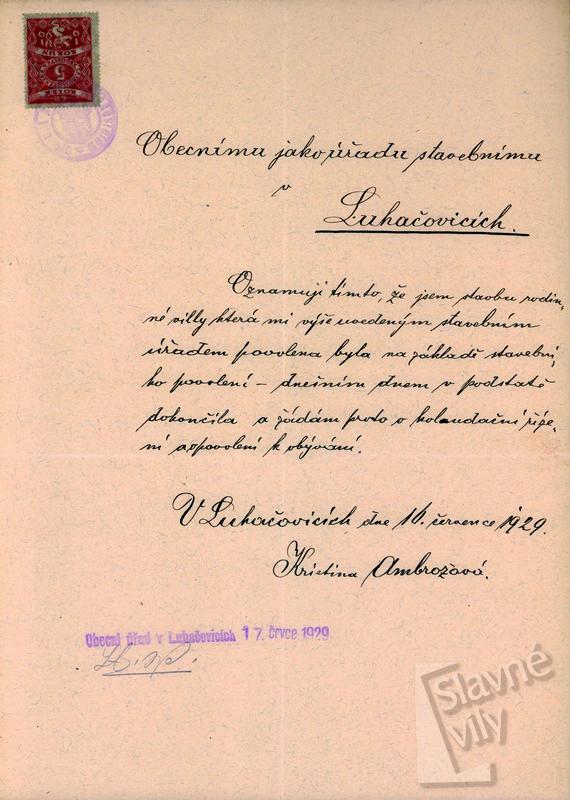 5
Obecnímu jako úřadu stavebnímu
v
Luhačovicích.
Oznamuji tímto, že jsem stavbu rodin-
né villy která mi výše uvedeným stavebním
úřadem povolena byla na základě stavební-
ho povolení – dnešním dnem v podstatě
dokončila a žádám proto o kolaudační říze-
ní a povolení k obývání.
V Luhačovicích, dne 16. července 1929.
Kristina Ambrožová.
Obecní úřad v Luhačovicích 17. črvce 1929
Slavné
vily